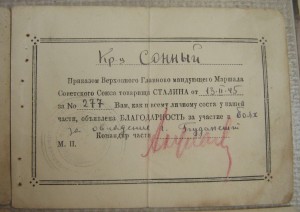 Кр-у СОННЫЙ
Приказом Верховного Главнокомандующего Маршала
Советского Союза товарища СТАЛИНА от 13-II-45
за № 277 Вам, как и всему личному составу нашей
части, объявлена БЛАГОДАРНОСТЬ за участие в боях
за овладение г. Будапешт
Командир части
М. П.